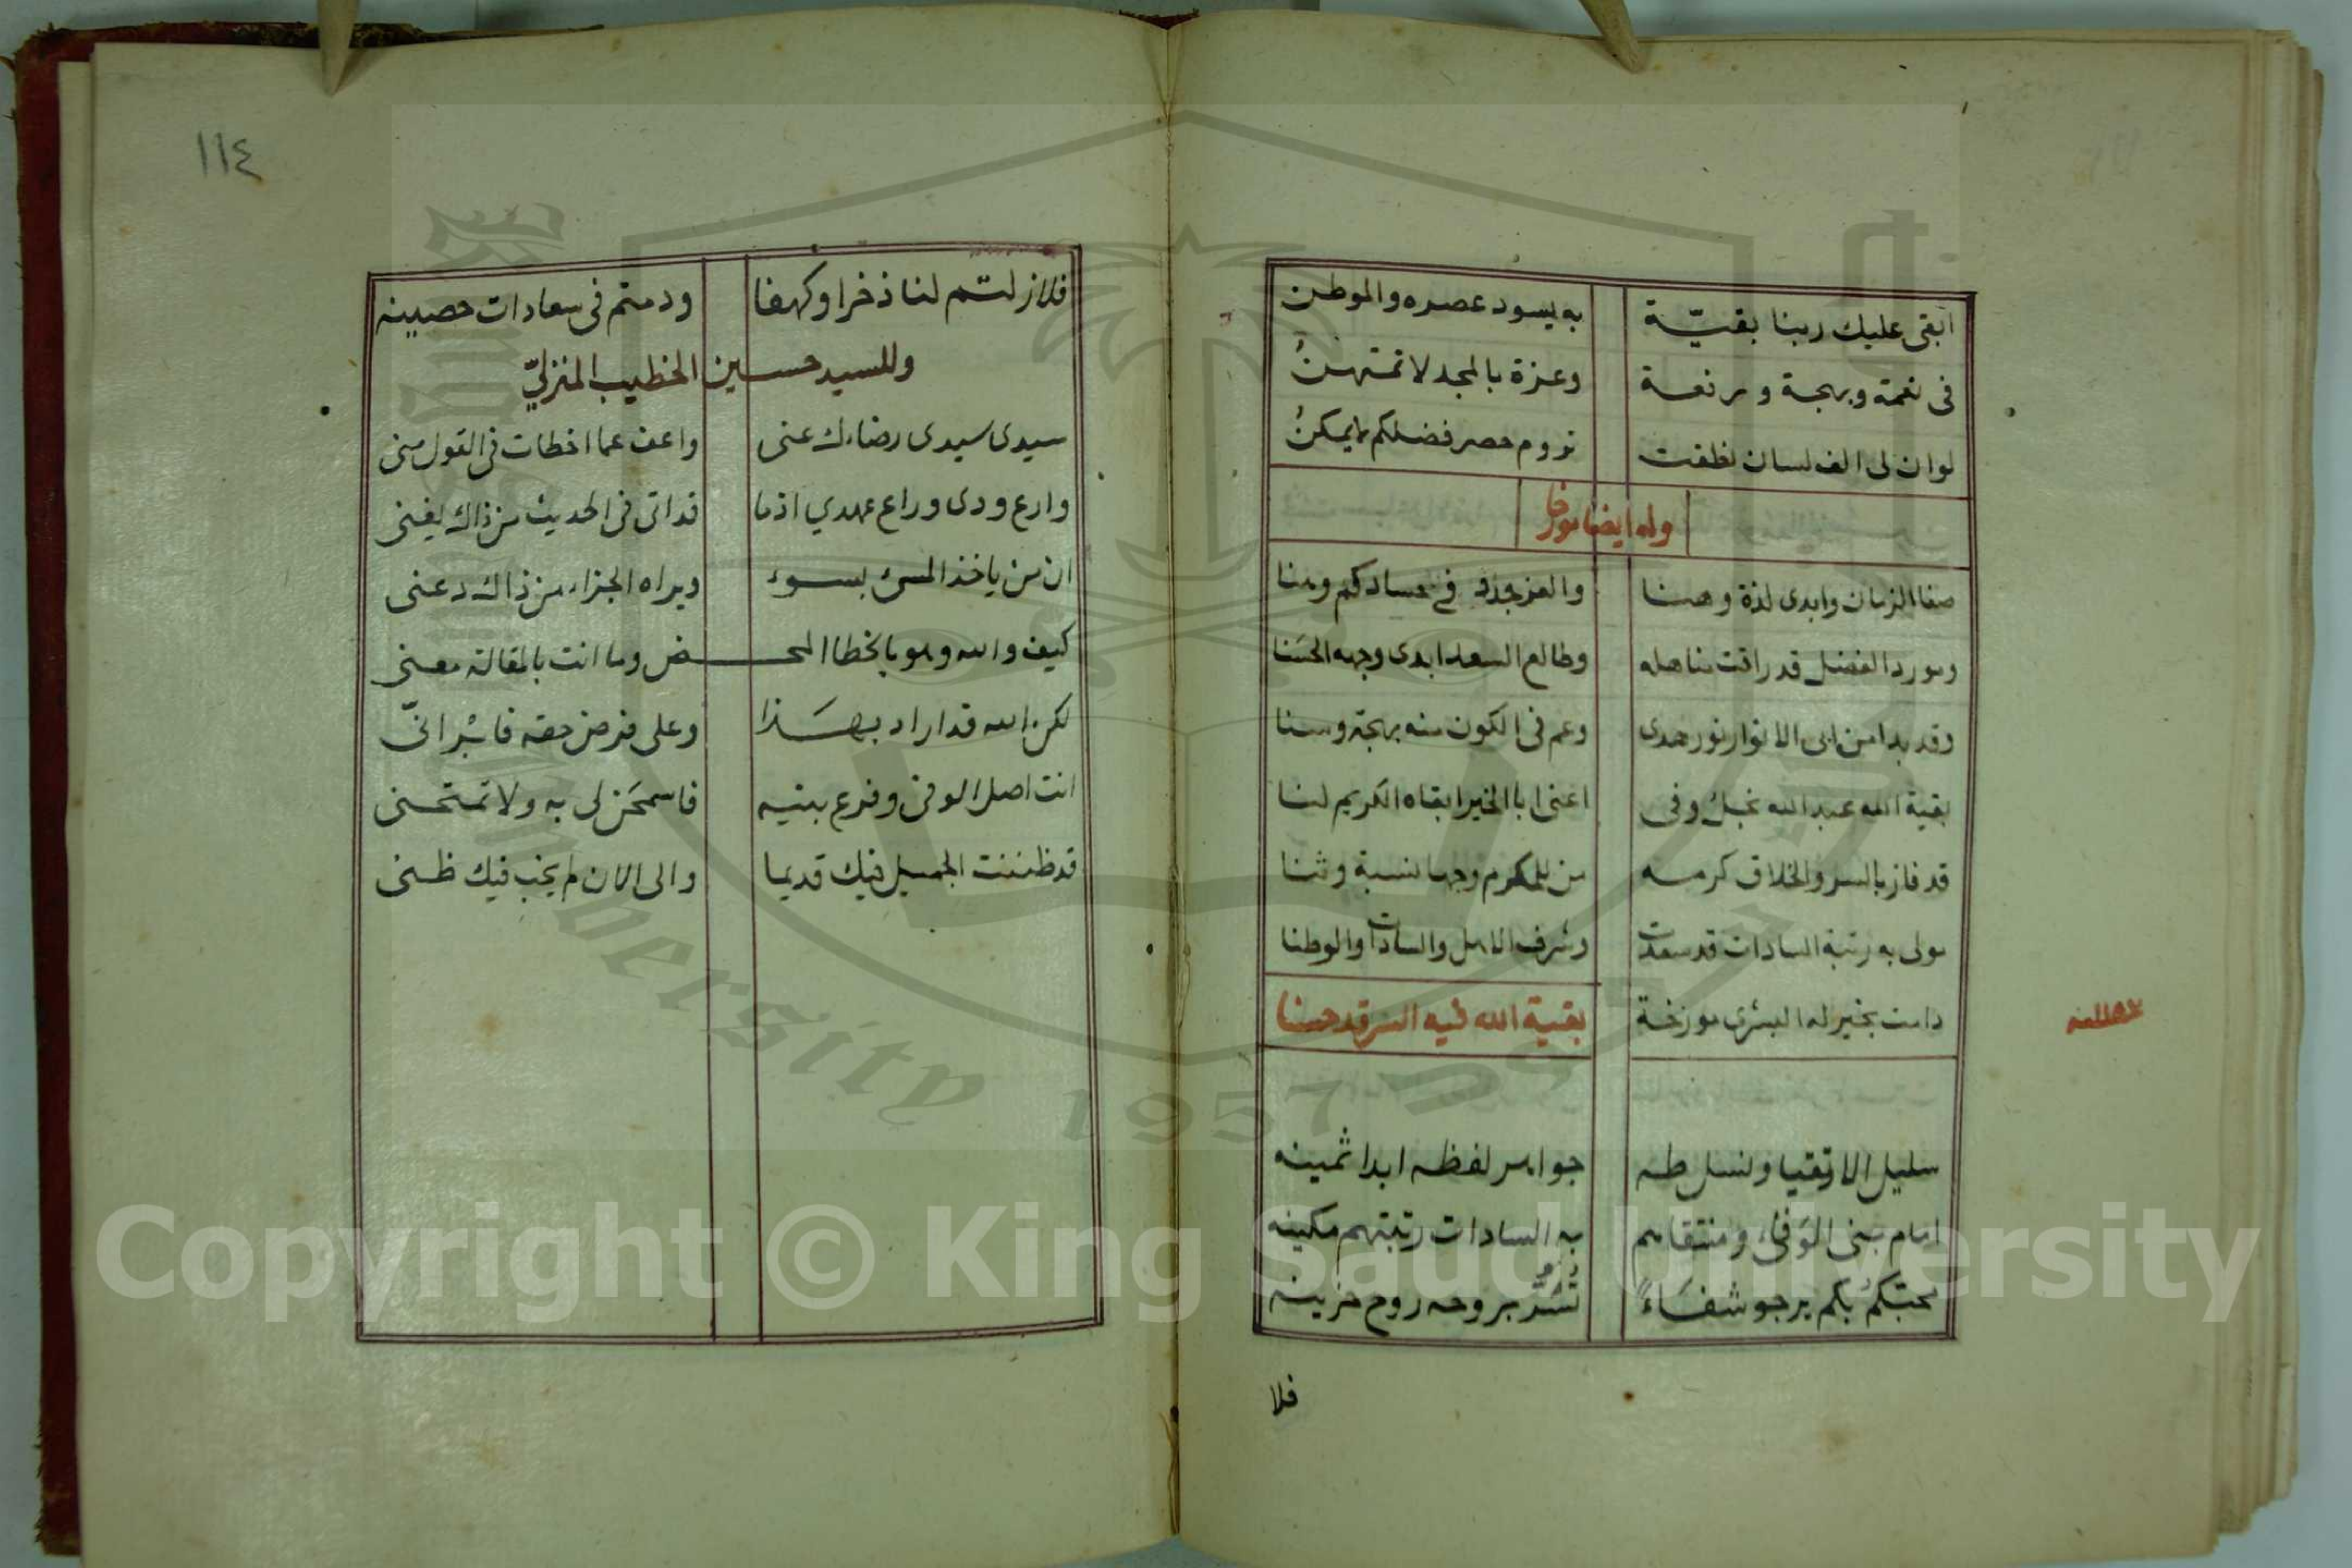 ابقى عليك ربنا بقيّة به يسود عصره والموطن
فى نعمة وبهجة ورفعة وعزة بالمجد لا تمتهنُ
لو ان لى الف لسان نظفت نروم حصر فضلكم لا يمكنُ
وله ايضا مورخا
صفا الزمان وابدى لذة وهنا والعز جدد فى حسادكم وهنا
ومورد الفضل قد راقت مناهله وطالع السعد ابدى وجهه الحسَنا
وقد بدا من ابى الانوار نور هدى وعم فى الكون منه بهجة وسنا
بقية الله عبد الله نجل وفى اعنى ابا الخير ابقاه الكريم لنا
قد فاز بالسر والخلاق كرمه من للمكرم وجها نسبة وثنا
مولى به رتبة السادات قد سعدت وشرف الاهل والسادات والوطنا
دامت بخير له البشرى مورخة بقية الله فيه السر قد حسنا
سليل الاتقيا ونسل طه جواهر لفظه ابدا ثمينه
امام بنى الوَفَاء ومنتقاهم به السادات رتبتهم مكينه
محبتكمُ بكم يرجو شفَاءً تُسَرُّ بروحه روح حزينه
فلا
١١٤
فلا زلتم لنا ذخرا وكهفا ودمتم فى سعادات حصينه
وللسيد حسين الخطيب المنزليّ
سيدى سيدى رضاءك عنى واعف عما اخطات فى القول منى
وارع ودى وراع عهدي اذ ما قد اتى فى الحديث من ذاك يغنى
ان من ياخذ المسئ بسوء ويراه الجزاء من ذاك دعنى
كيف والله وهو بالخطا المحـض وما انت بالمقالة معنى
لكن الله قد اراد بهَـذا وعلى فرض حقه فاشر انّى
انت اصل الوفى وفرع بنيه فاسمحَن لى به ولا تمتحنى
قد ظننت الجميل فيك قديما والى الان لم يخب فيك ظنى
Copyright © King Saud University
King Saud University 1957